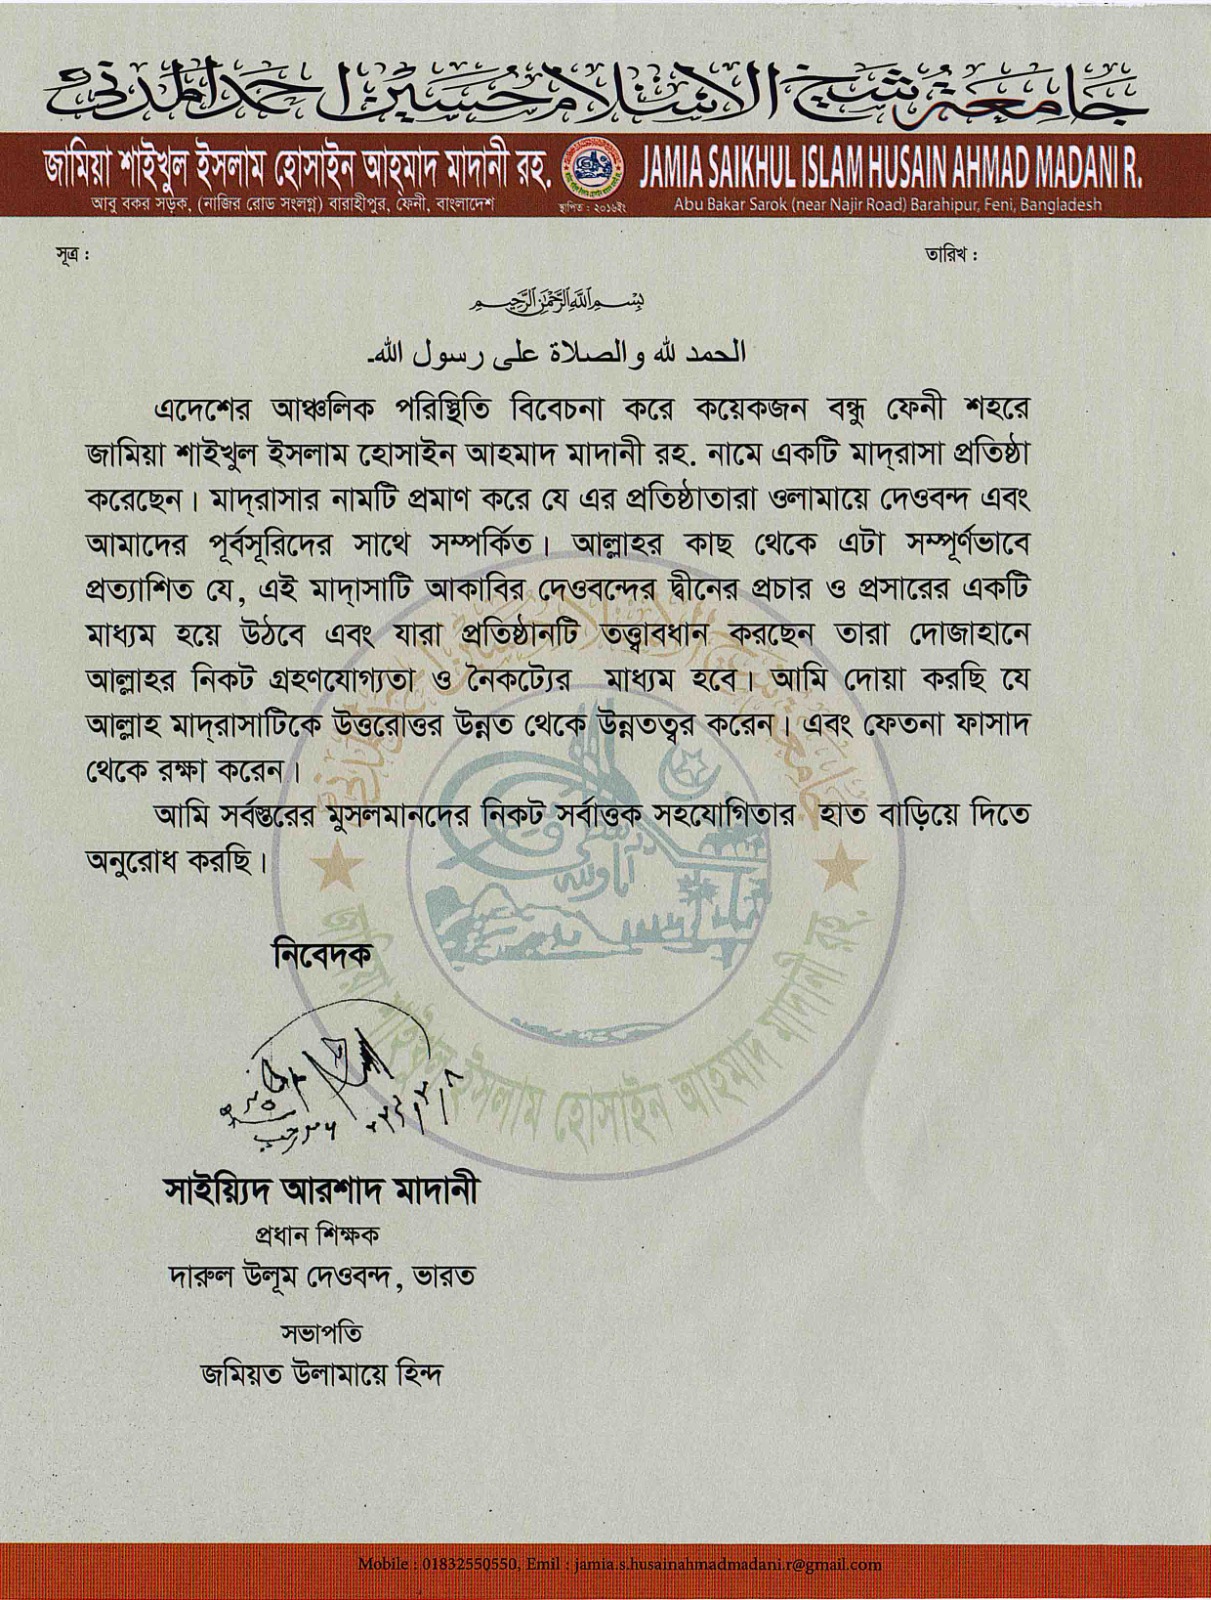 جامعة شيخ الإسلام حسين احمد المدني
জামিয়া শাইখুল ইসলাম হোসাইন আহ্‌মাদ মাদানী রহ.
আবু বকর সড়ক, (নাজির রোড সংলগ্ন) বারাহীপুর, ফেনী, বাংলাদেশ
স্থাপিত : ২০১৬ইং
JAMIA SAIKHUL ISLAM HUSAIN AHMAD MADANI R.
Abu Bakar Sarok (near Najir Road) Barahipur, Feni, Bangladesh
সূত্র :
তারিখ :
بسم الله الرحمن الرحيم
الحمد لله والصلاة على رسول الله۔
এদেশের আঞ্চলিক পরিস্থিতি বিবেচনা করে কয়েকজন বন্ধু ফেনী শহরে
জামিয়া শাইখুল ইসলাম হোসাইন আহমাদ মাদানী রহ. নামে একটি মাদ্‌রাসা প্রতিষ্ঠা
করেছেন। মাদ্‌রাসার নামটি প্রমাণ করে যে এর প্রতিষ্ঠাতারা ওলামায়ে দেওবন্দ এবং
আমাদের পূর্বসূরিদের সাথে সম্পর্কিত। আল্লাহর কাছ থেকে এটা সম্পূর্ণভাবে
প্রত্যাশিত যে, এই মাদ্‌াসাটি আকাবির দেওবন্দের দ্বীনের প্রচার ও প্রসারের একটি
মাধ্যম হয়ে উঠবে এবং যারা প্রতিষ্ঠানটি তত্ত্বাবধান করছেন তারা দোজাহানে
আল্লাহর নিকট গ্রহণযোগ্যতা ও নৈকট্যের মাধ্যম হবে। আমি দোয়া করছি যে
আল্লাহ মাদ্‌রাসাটিকে উত্তরোত্তর উন্নত থেকে উন্নতত্বর করেন। এবং ফেতনা ফাসাদ
থেকে রক্ষা করেন।
আমি সর্বস্তরের মুসলমানদের নিকট সর্বাত্তক সহযোগিতার হাত বাড়িয়ে দিতে
অনুরোধ করছি।
জামিয়া শাইখুল ইসলাম হোসাইন আহমাদ মাদানী রহ.
নিবেদক
সাইয়্যিদ আরশাদ মাদানী
প্রধান শিক্ষক
দারুল উলূম দেওবন্দ, ভারত
সভাপতি
জমিয়ত উলামায়ে হিন্দ
Mobile : 01832550550, Emil : jamia.s.husainahmadmadani.r@gmail.com